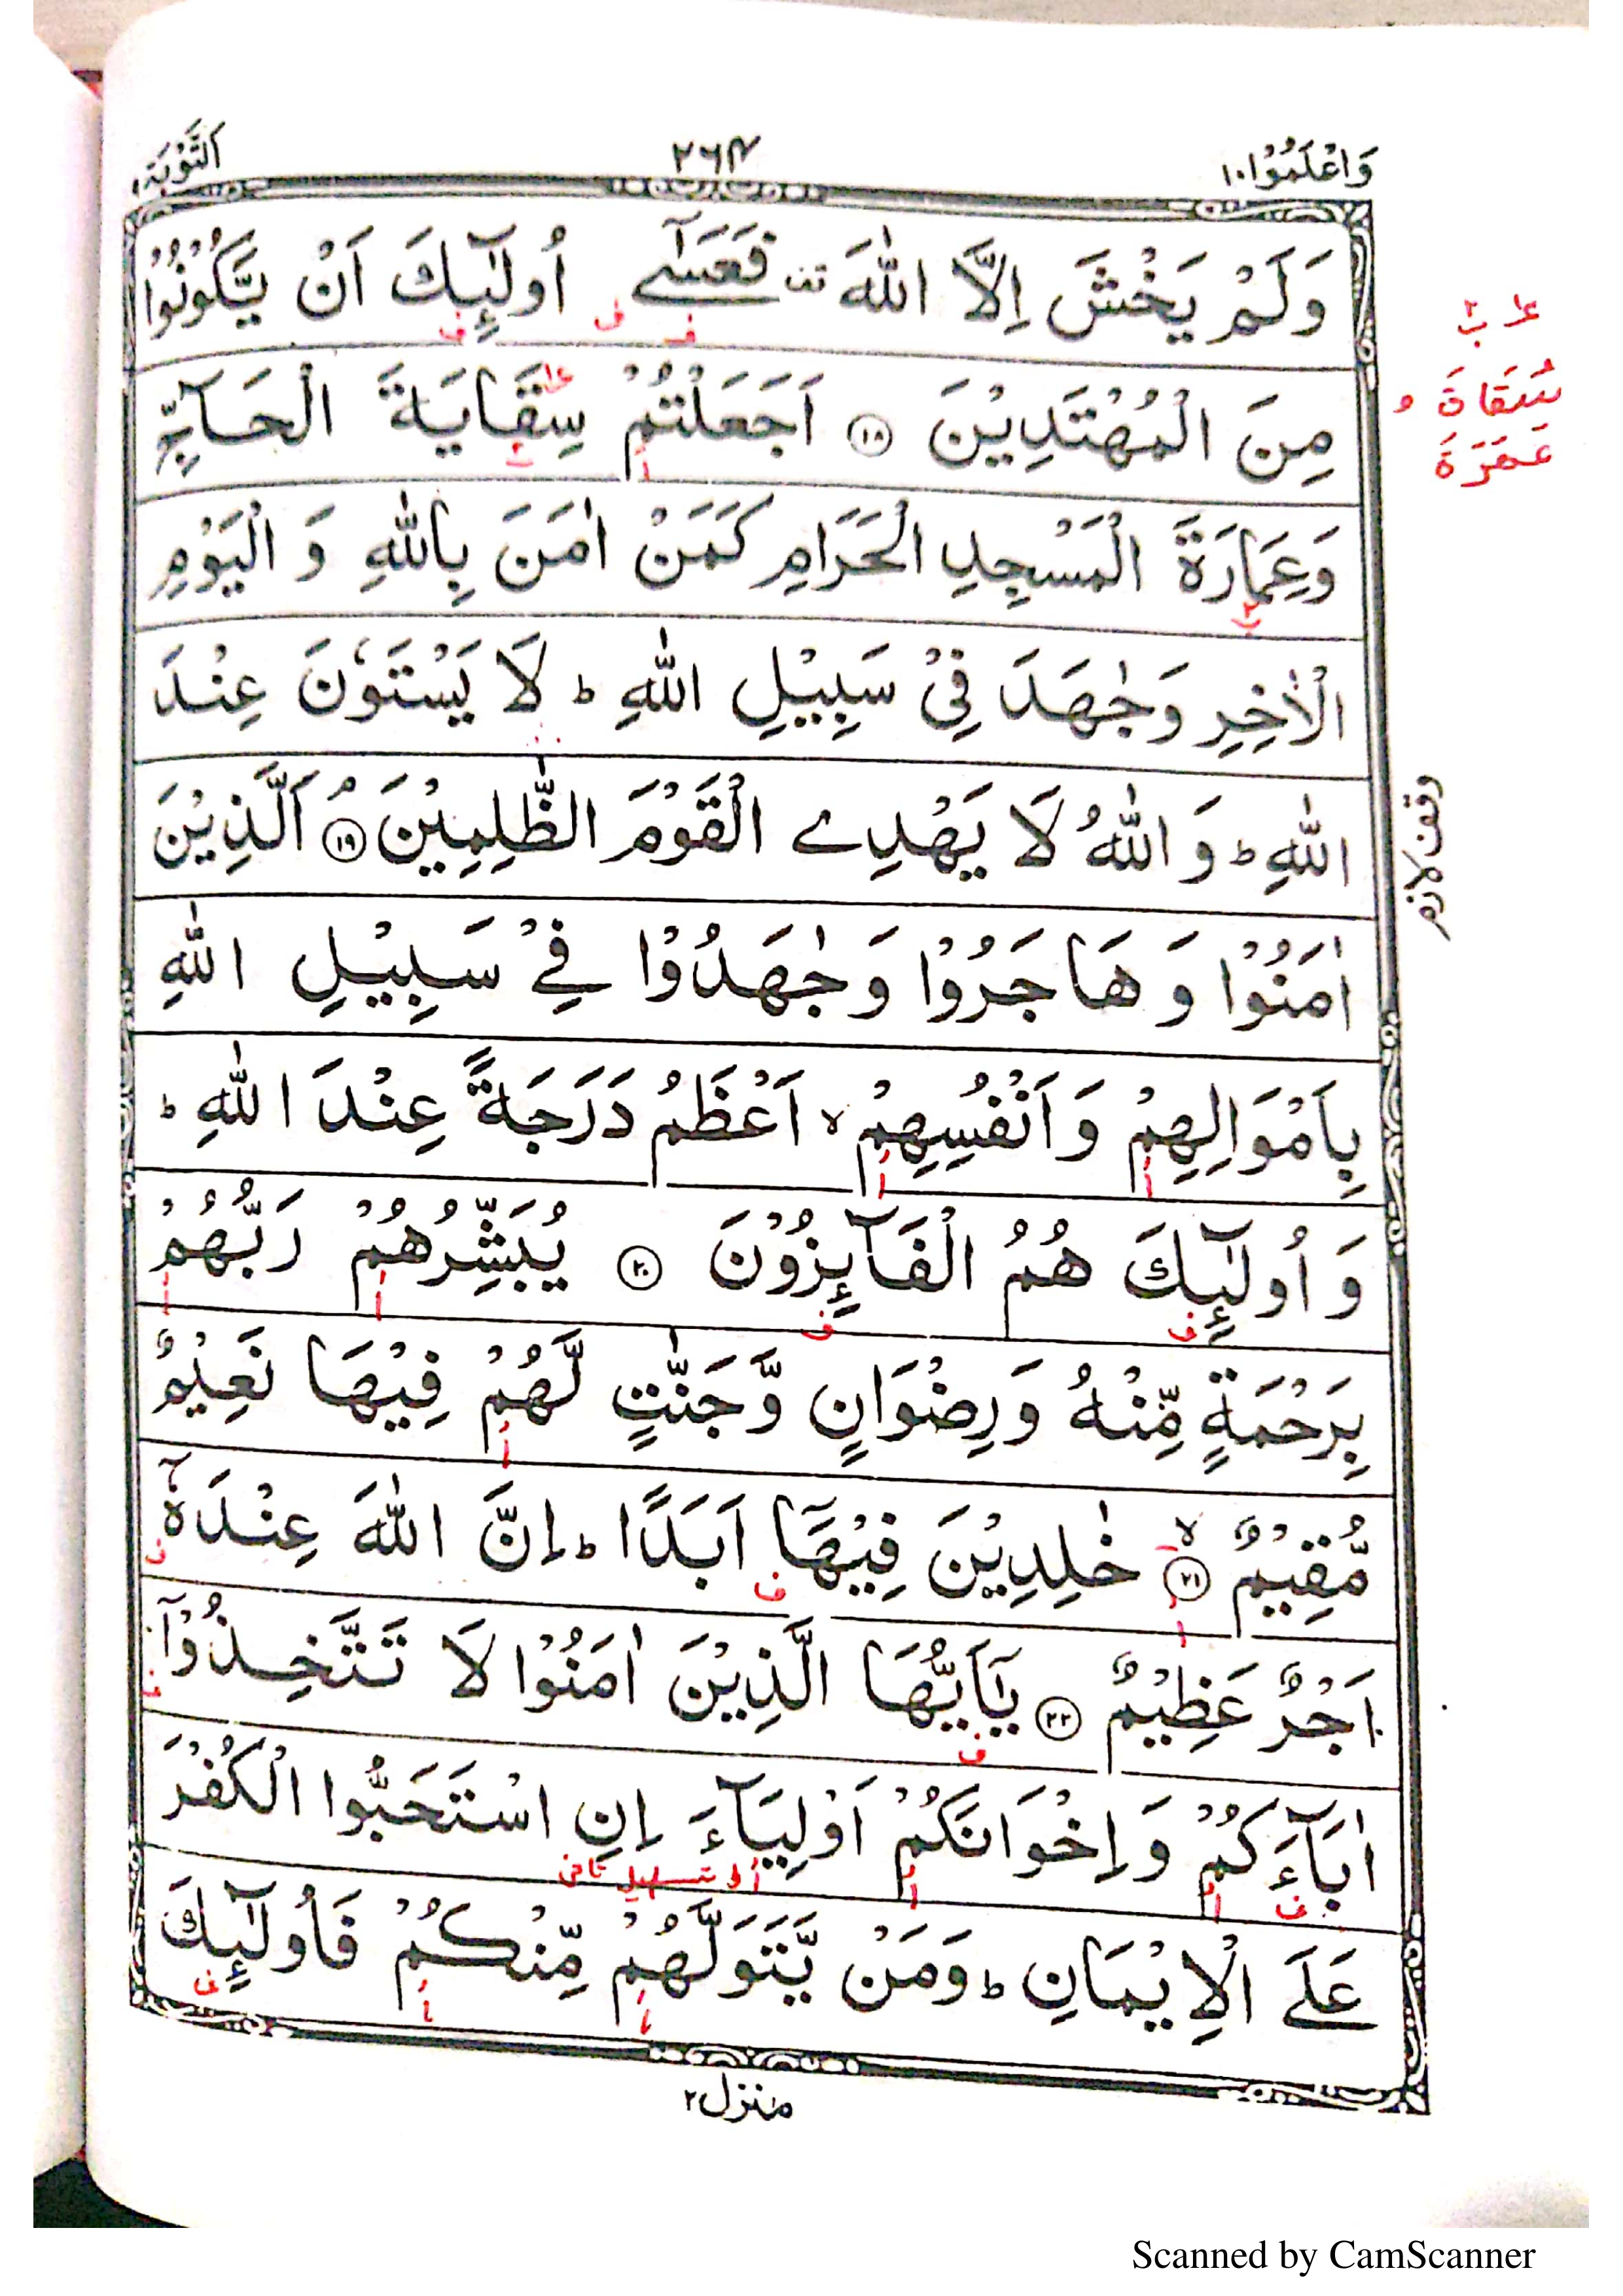 وَاعْلَمُوْا ١٠ ٢٦٤ اَلتَّوْبَة ٩
وَلَمْ يَخْشَ اِلَّا اللّٰهَ قف فَعَسٰٓى اُولٰٓئِكَ اَنْ يَّكُوْنُوْا
مِنَ الْمُهْتَدِيْنَ ١٨ اَجَعَلْتُمْ سِقَايَةَ الْحَآجِّ
وَعِمَارَةَ الْمَسْجِدِ الْحَرَامِ كَمَنْ اٰمَنَ بِاللّٰهِ وَ الْيَوْمِ
الْاٰخِرِ وَجٰهَدَ فِيْ سَبِيْلِ اللّٰهِ ط لَا يَسْتَوٗنَ عِنْدَ
اللّٰهِ ط وَ اللّٰهُ لَا يَهْدِے الْقَوْمَ الظّٰلِمِيْنَ ١٩ م اَلَّذِيْنَ
اٰمَنُوْا وَ هَاجَرُوْا وَ جٰهَدُوْا فِےْ سَبِيْلِ اللّٰهِ
بِاَمْوَالِهِمْ وَ اَنْفُسِهِمْ لا اَعْظَمُ دَرَجَةً عِنْدَ اللّٰهِ ط
وَ اُولٰٓئِكَ هُمُ الْفَآئِزُوْنَ ٢٠ يُبَشِّرُهُمْ رَبُّهُمْ
بِرَحْمَةٍ مِّنْهُ وَ رِضْوَانٍ وَّ جَنّٰتٍ لَّهُمْ فِيْهَا نَعِيْمٌ
مُّقِيْمٌ ٢١ لا خٰلِدِيْنَ فِيْهَآ اَبَدًا ط اِنَّ اللّٰهَ عِنْدَهٗٓ
اَجْرٌ عَظِيْمٌ ٢٢ يٰٓاَيُّهَا الَّذِيْنَ اٰمَنُوْا لَا تَتَّخِذُوْٓا
اٰبَآءَكُمْ وَ اِخْوَانَكُمْ اَوْلِيَآءَ اِنِ اسْتَحَبُّوا الْكُفْرَ
عَلَى الْاِيْمَانِ ط وَمَنْ يَّتَوَلَّهُمْ مِّنْكُمْ فَاُولٰٓئِكَ
منزل ٢
سُقَاةَ و
عَمَرَةَ
وقف لازم
Scanned by CamScanner